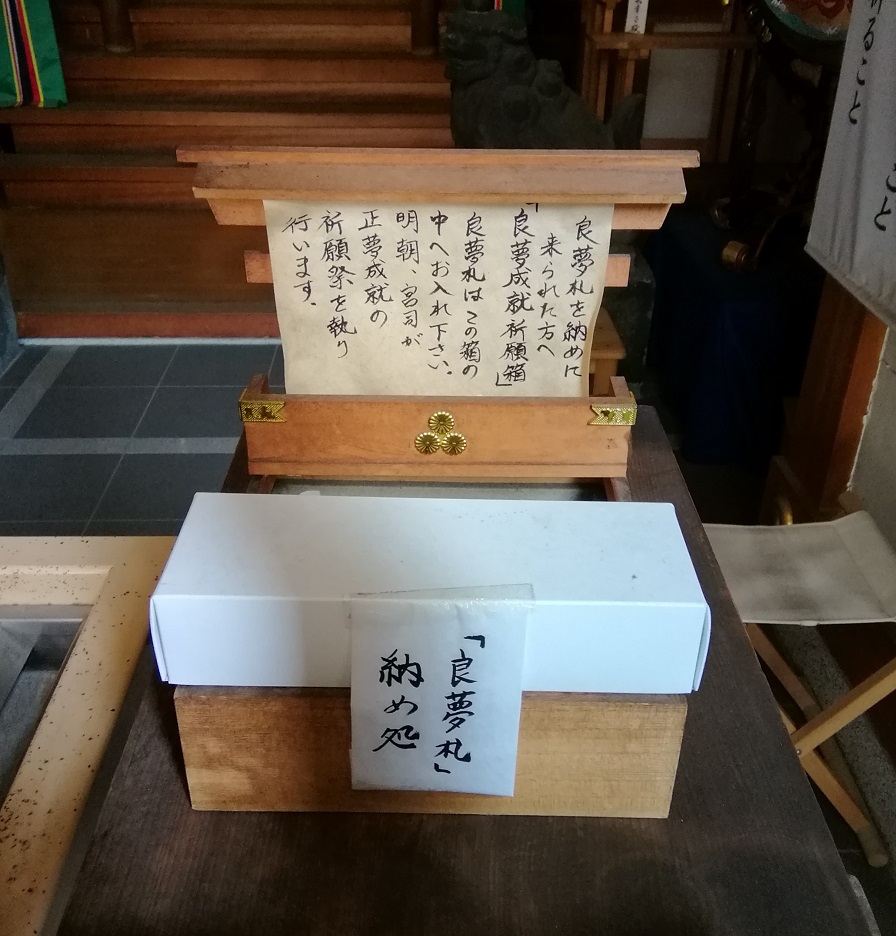 良夢札を納めに
来られた方へ
「良夢成就祈願箱」
良夢札はこの箱の
中へお入れ下さい。
明朝、宮司が
正夢成就の
祈願祭を執り
行います。
「良夢札」
納め処
祈ること
こと